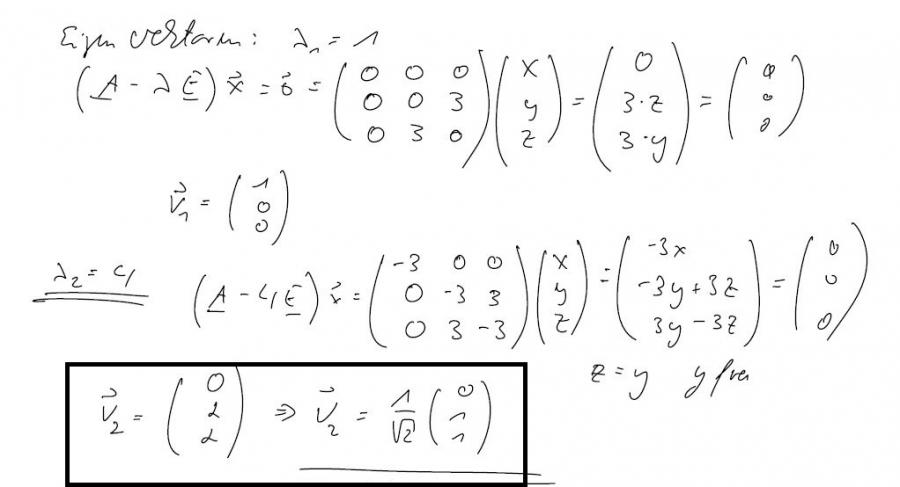 Eigenvektoren: λ₁ = 1
(A - λ E) x⃗ = 0⃗ = (0 0 0; 0 0 3; 0 3 0) (x; y; z) = (0; 3·z; 3·y) = (0; 0; 0)
v⃗₁ = (1; 0; 0)
λ₂ = 4 (A - 4 E) x⃗ = (-3 0 0; 0 -3 3; 0 3 -3) (x; y; z) = (-3x; -3y + 3z; 3y - 3z) = (0; 0; 0)
z = y y frei
v⃗₂ = (0; 2; 2) ⇒ v⃗₂ = 1/√2 (0; 1; 1)